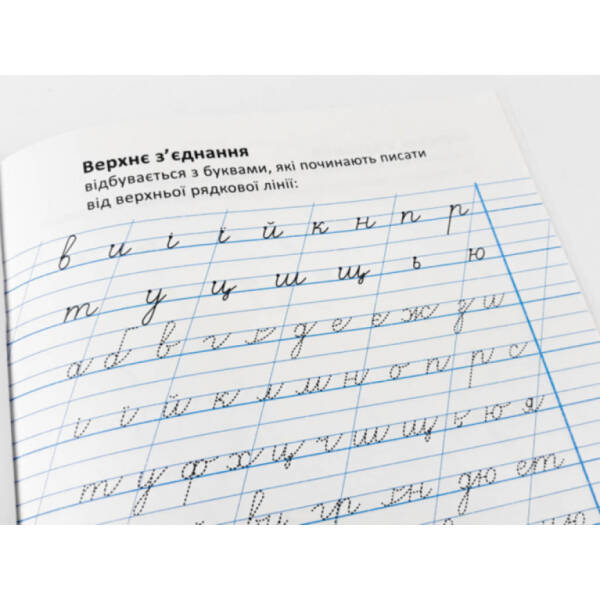 Верхнє з’єднання
відбувається з буквами, які починають писати
від верхньої рядкової лінії:
в и і ї й к н п р
т у ц ш щ ь ю
а б в г ґ д е є ж з и
і ї й к л м н о п р с
т у ф х ц ч ш щ ь ю я
ви гр лн дю ет